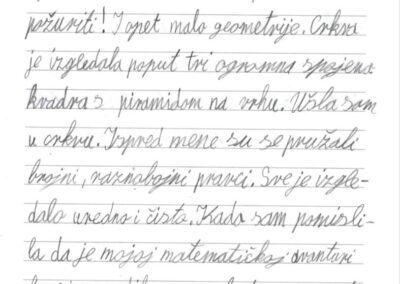 požuriti! I opet malo geometrije. Crkva
je izgledala poput tri ogromna spojena
kvadra s piramidom na vrhu. Ušla sam
u crkvu. Ispred mene su se pružali
brojni, raznobojni pravci. Sve je izgle-
dalo uredno i čisto. Kada sam pomisli-
la da je mojoj matematičkoj avanturi